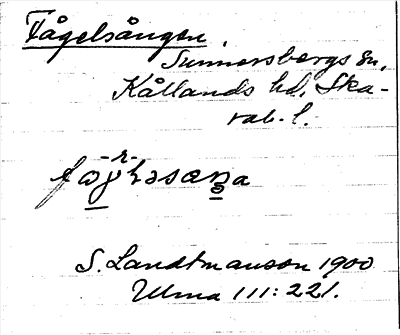 Fågelsången,
Sunnersbergs sn,
Kållands hd, Ska-
rab. l.
-r-
S. Landtmanson 1900
Ulma 111:221.